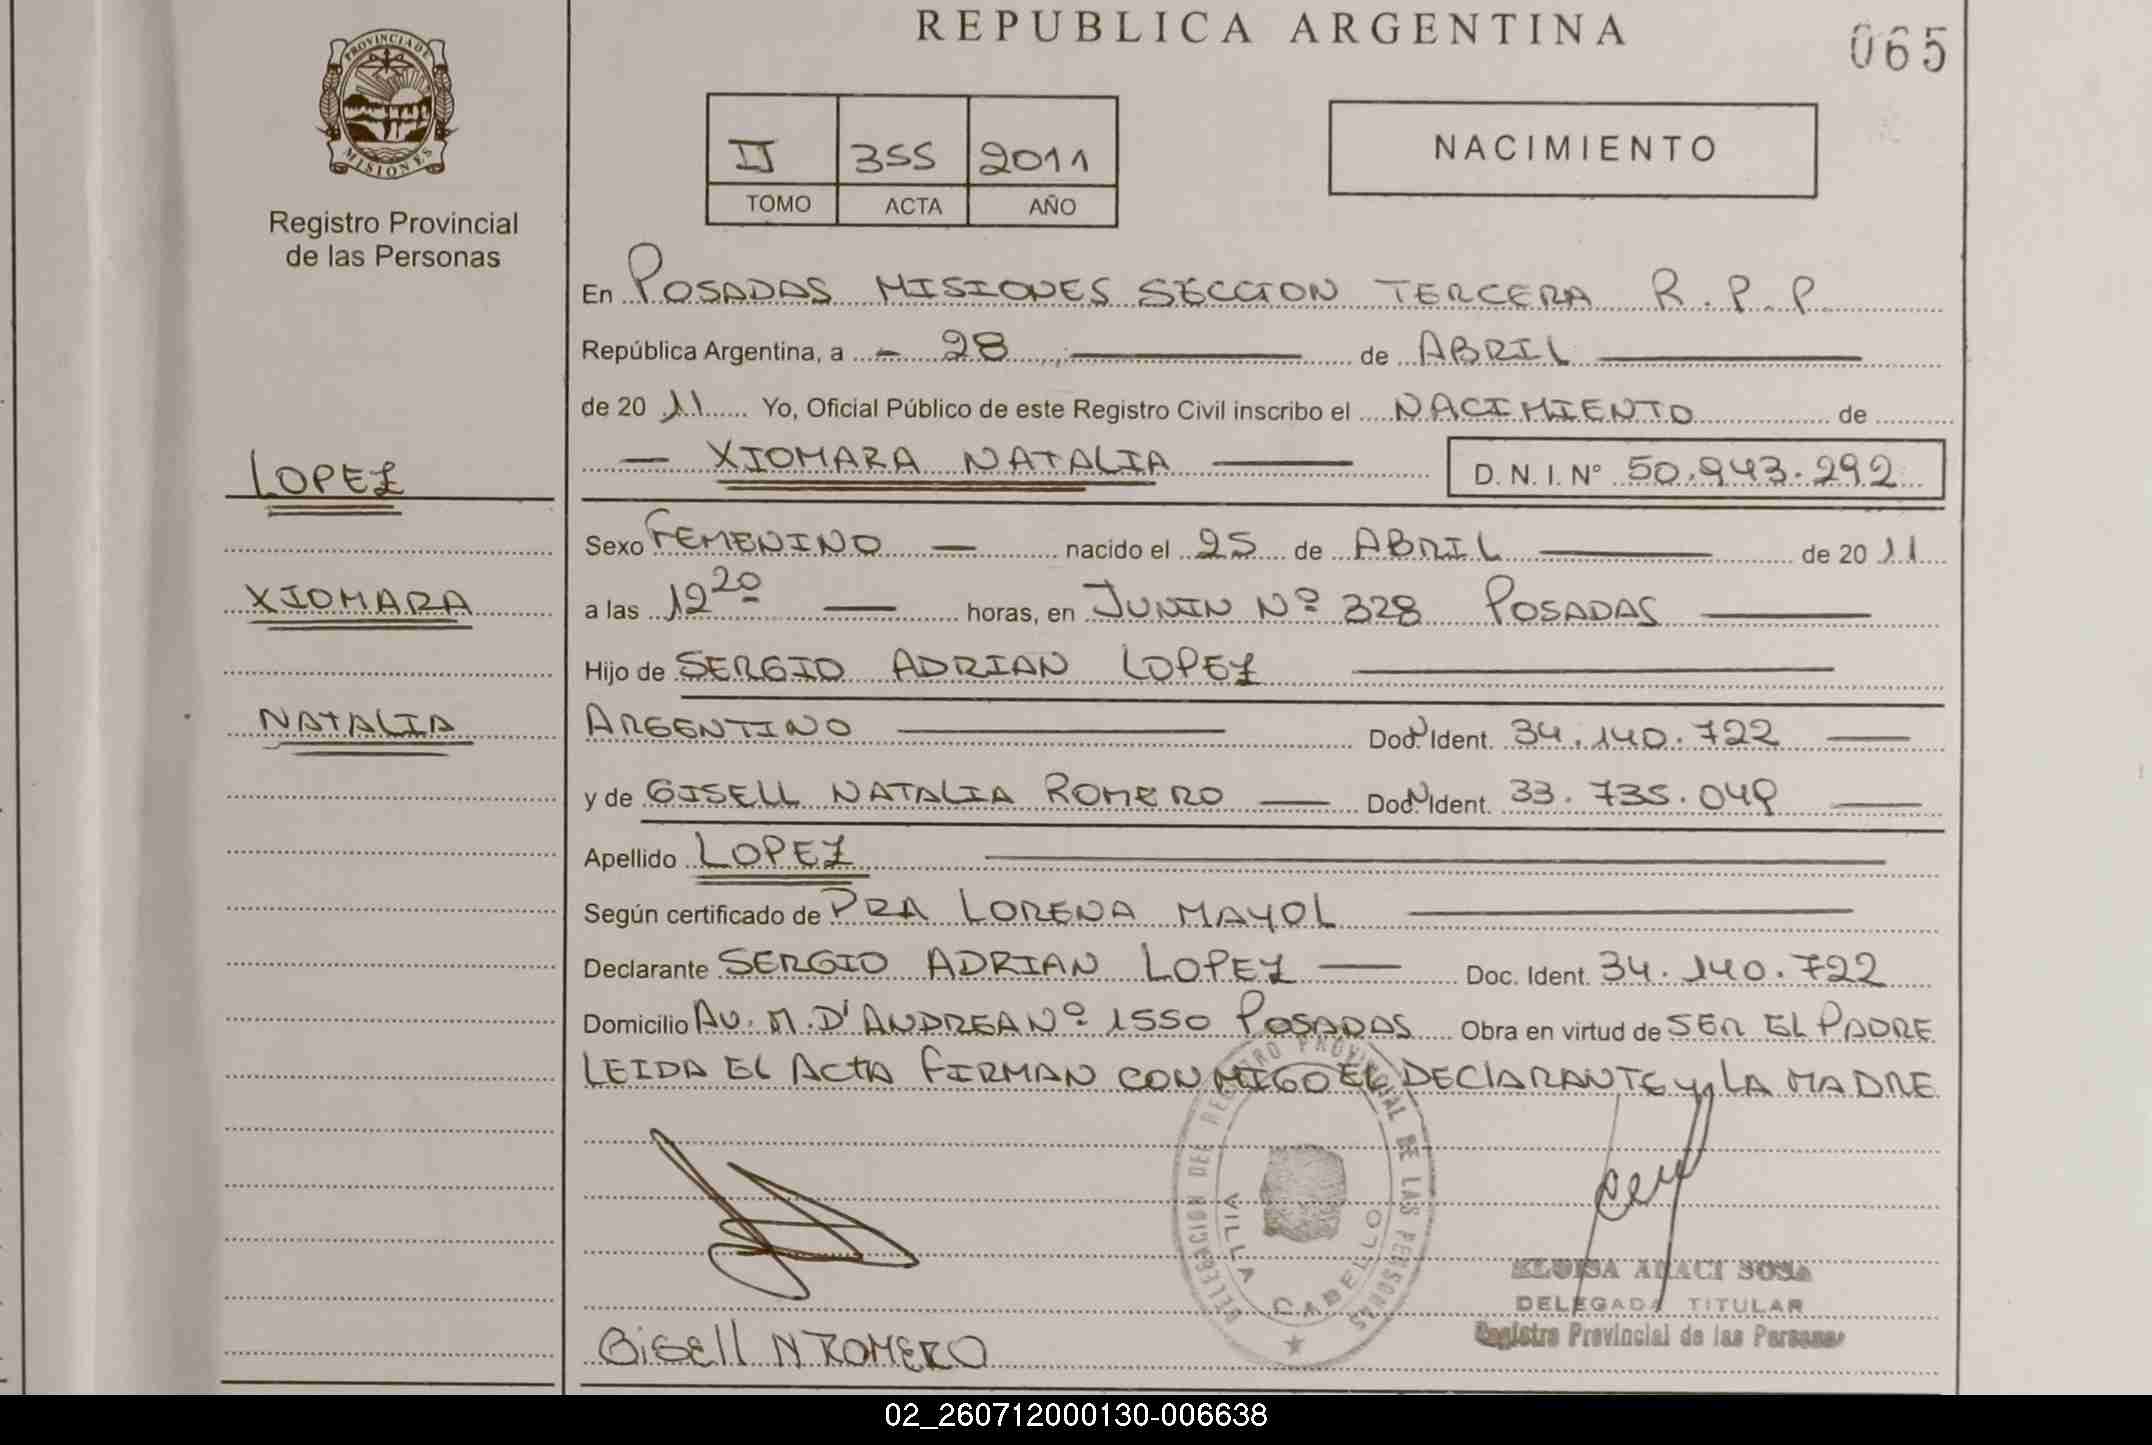 REPUBLICA ARGENTINA
065
PROVINCIA DE
MISIONES
Registro Provincial
de las Personas
II 355 2011
TOMO ACTA AÑO
NACIMIENTO
En POSADAS MISIONES SECCION TERCERA R.P.P.
República Argentina, a - 28 de ABRIL
de 20 11 Yo, Oficial Público de este Registro Civil inscribo el NACIMIENTO de
XIOMARA NATALIA D. N. I. N° 50.943.292
LOPEZ
XIOMARA
NATALIA
Sexo FEMENINO nacido el 25 de ABRIL de 20 11
a las 12 20 horas, en JUNIN Nº 328 POSADAS
Hijo de SERGIO ADRIAN LOPEZ
ARGENTINO Doc. N° Ident. 34.140.722
y de GISELL NATALIA ROMERO Doc. N° Ident. 33.735.049
Apellido LOPEZ
Según certificado de DRA LORENA MAYOL
Declarante SERGIO ADRIAN LOPEZ Doc. Ident. 34.140.722
Domicilio AV. M. D'ANDREA Nº 1550 POSADAS Obra en virtud de SER EL PADRE
LEIDA EL ACTA FIRMAN CONMIGO EL DECLARANTE y LA MADRE
DELEGACION DEL REGISTRO PROVINCIAL DE LAS PERSONAS
VILLA CABELLO
ELOISA ARACI SOSA
DELEGADA TITULAR
Registro Provincial de las Personas
Gisell N ROMERO
02_260712000130-006638